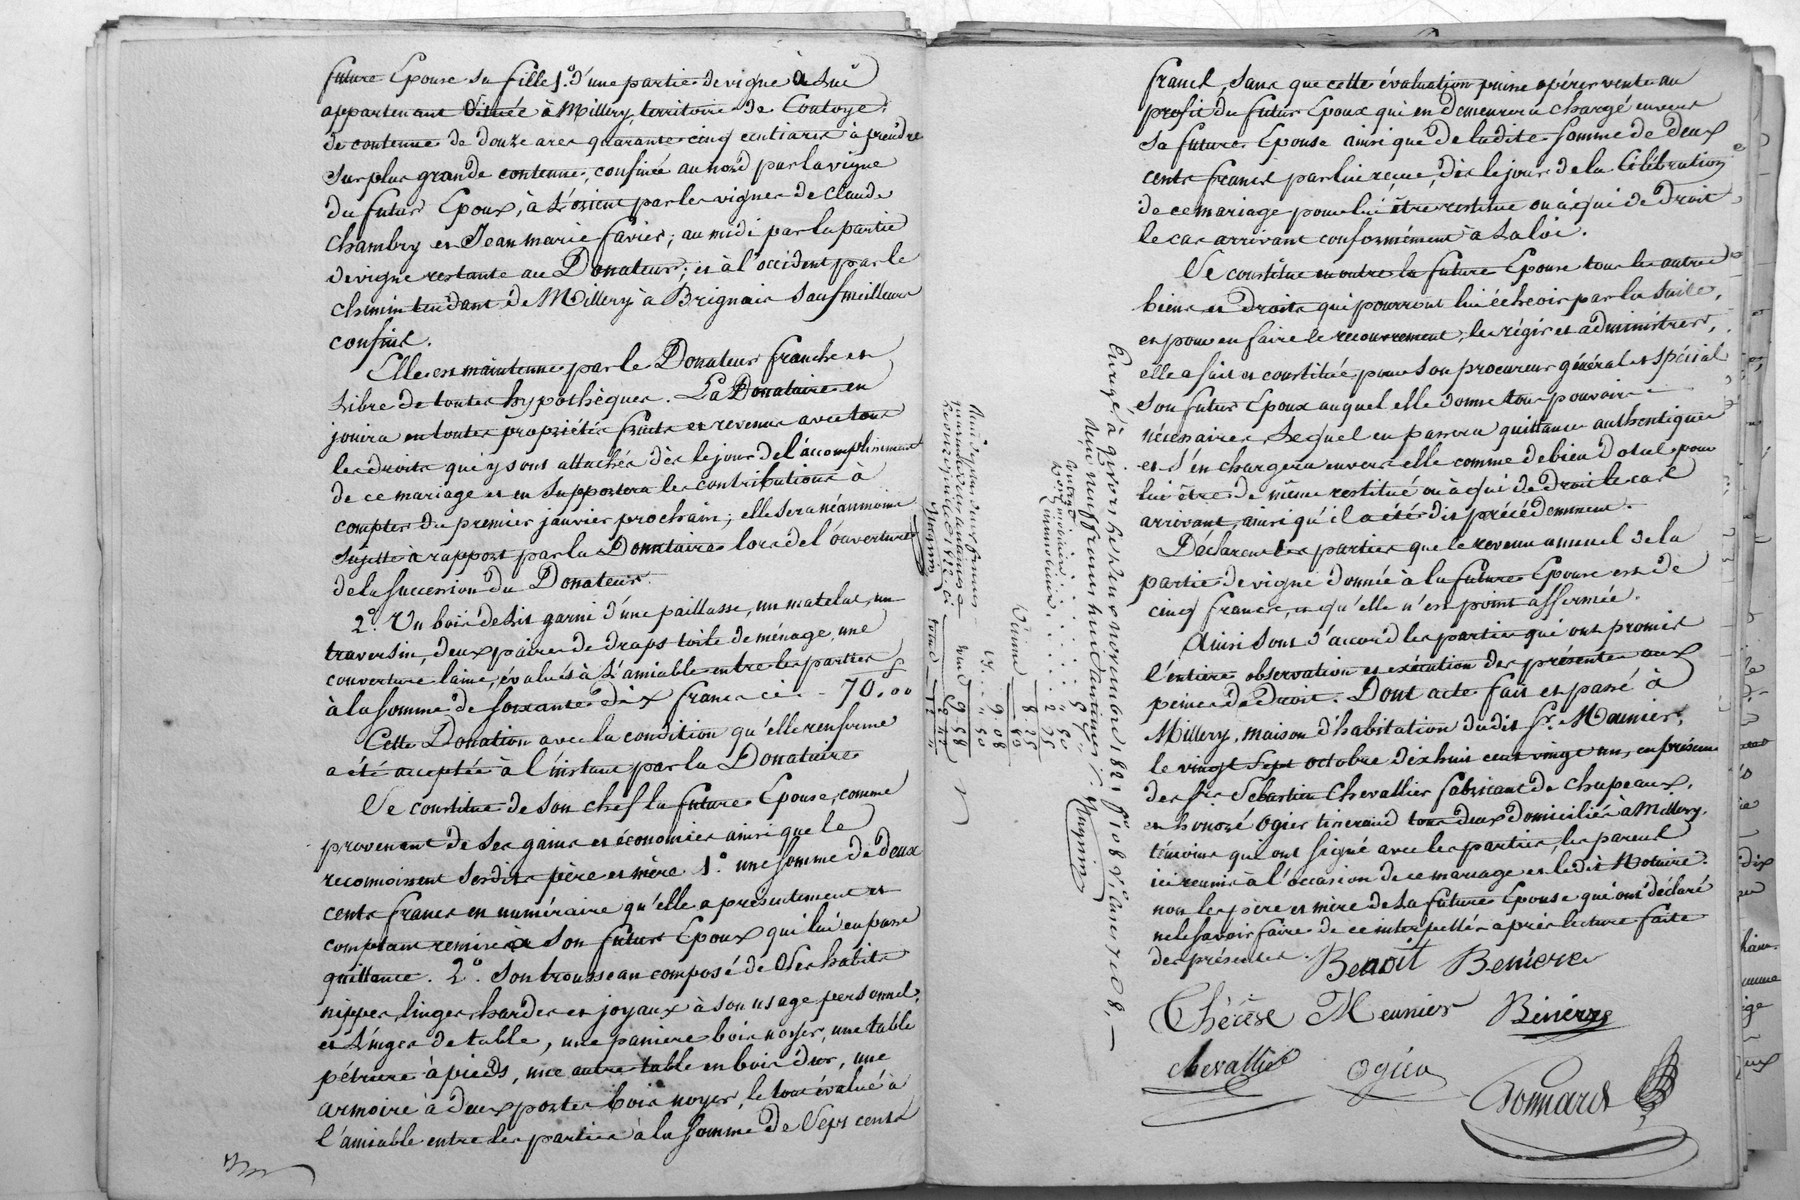 future Epouse sa fille 1.º d'une partie de vigne à lui
appartenant située à Millery, territoire de Coutoye,
de contenue de douze ares quarante cinq centiares à prendre
sur plus grande contenue, confinée au nord par la vigne
du futur Epoux, à l'orient par les vignes de Claude
Chambry et Jean marie favier; au midi par la partie
de vigne restante au Donateur; et à l'occident par le
chemin tendant de Millery à Brignais sauf meilleurs
confins.
Elle est maintenue par le Donateur franche et
libre de toutes hypothèques. La Donataire en
jouira en toutes propriétés fruits et revenus avec tous
les droits qui y sont attachés dès le jour de l'accomplissement
de ce mariage et en supportera les contributions à
compter du premier janvier prochain; elle sera néanmoins
sujette à rapport par la Donataire lors de l'ouverture
de la succession du Donateur.
2.º Un bois de lit garni d'une paillasse, un matelas, un
traversin, deux paires de draps toile de ménage, une
couverture laine, évalués à l'amiable entre les parties
à la somme de soixante dix francs ci - 70.f 00
Cette Donation avec la condition qu'elle renferme
a été acceptée à l'instant par la Donataire
Se constitue de son chef la future Epouse, comme
provenant de ses gains et économies ainsi que le
reconnoissent sesdits père et mère 1.º une somme de deux
cents francs en numéraire qu'elle a présentement et
comptant remise à son futur Epoux qui lui en passe
quittance. 2.º Son trousseau composé de ses habits
nippes, linges, hardes et joyaux à son usage personnel,
et linges de table, une panière bois noyer, une table
pétrière à pieds, une autre table en bois dur, une
armoire à deux portes bois noyer, le tout évalué à
l'amiable entre les parties à la somme de sept cents
francs, sans que cette évaluation puisse opérer vente au
profit du futur Epoux qui en demeurera chargé envers
sa future Epouse ainsi que de ladite somme de deux
cents francs par lui reçue, dès le jour de la Célébration
de ce mariage pour lui être restitué ou à qui de droit
le cas arrivant conformément à la loi.
Se constitue en outre la future Epouse tous les autres
biens et droits qui pourront lui échevoir par la suite,
et pour en faire le recouvrement, les régir et administrer,
elle a fait et constitué pour son procureur général et spécial
son futur Epoux auquel elle donne tous pouvoirs
nécessaires, lequel en passera quittance authentique
et s'en chargera envers elle comme de bien Dotal pour
lui être de même restitué ou à qui de droit le cas
arrivant, ainsi qu'il a été dit précédemment.
Déclarent les parties que le revenu annuel de la
partie de vigne donnée à la future Epouse est de
cinq francs, et qu'elle n'est point affermée.
Ainsi sont d'accord les parties qui ont promis
l'entière observation et exécution des présentes aux
peines de Droit. Dont acte fait et passé à
Millery, maison d'habitation dudit Sr. Mounier,
le vingt sept octobre dix huit cent vingt un, en présence
des Srs. Sébastien Chevallier fabricant de chapeaux,
et honoré Ogier tisserand tous deux domiciliés à Millery,
témoins qui ont signé avec les parties, les parens
ici reunis à l'occasion de ce mariage et ledit Notaire.
non les père et mère de la future Epouse qui ont déclaré
ne le savoir faire de ce interpellés après lecture faite
des présentes.
Benoît Benière
Thérèse Meunier Bénière
chevallier ogier
Ponnard
Enregé. à givors le deux novembre 1821 fº 108 Rº Cases 7 et 8,
8. 25
2. 75
9. 08
9. 58